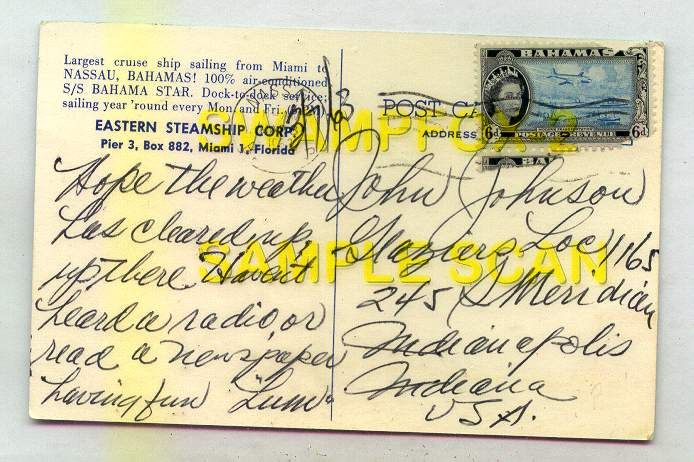 Largest cruise ship sailing from Miami to
NASSAU, BAHAMAS! 100% air-conditioned
S/S BAHAMA STAR. Dock-to-dock service;
sailing year 'round every Mon. and Fri.
EASTERN STEAMSHIP CORP.
Pier 3, Box 882, Miami 1, Florida
POST CA
ADDRESS
BAHAMAS
6d 6d
POSTAGE & REVENUE
SWAMPFOX 2
SAMPLE SCAN
Hope the weather
has cleared up
up there. Havent
heard a radio, or
read a newspaper
having fun "Lum"
John Johnson
Glaziers Loc. 1165
245 S Meridian
Indianapolis
Indiana
USA.